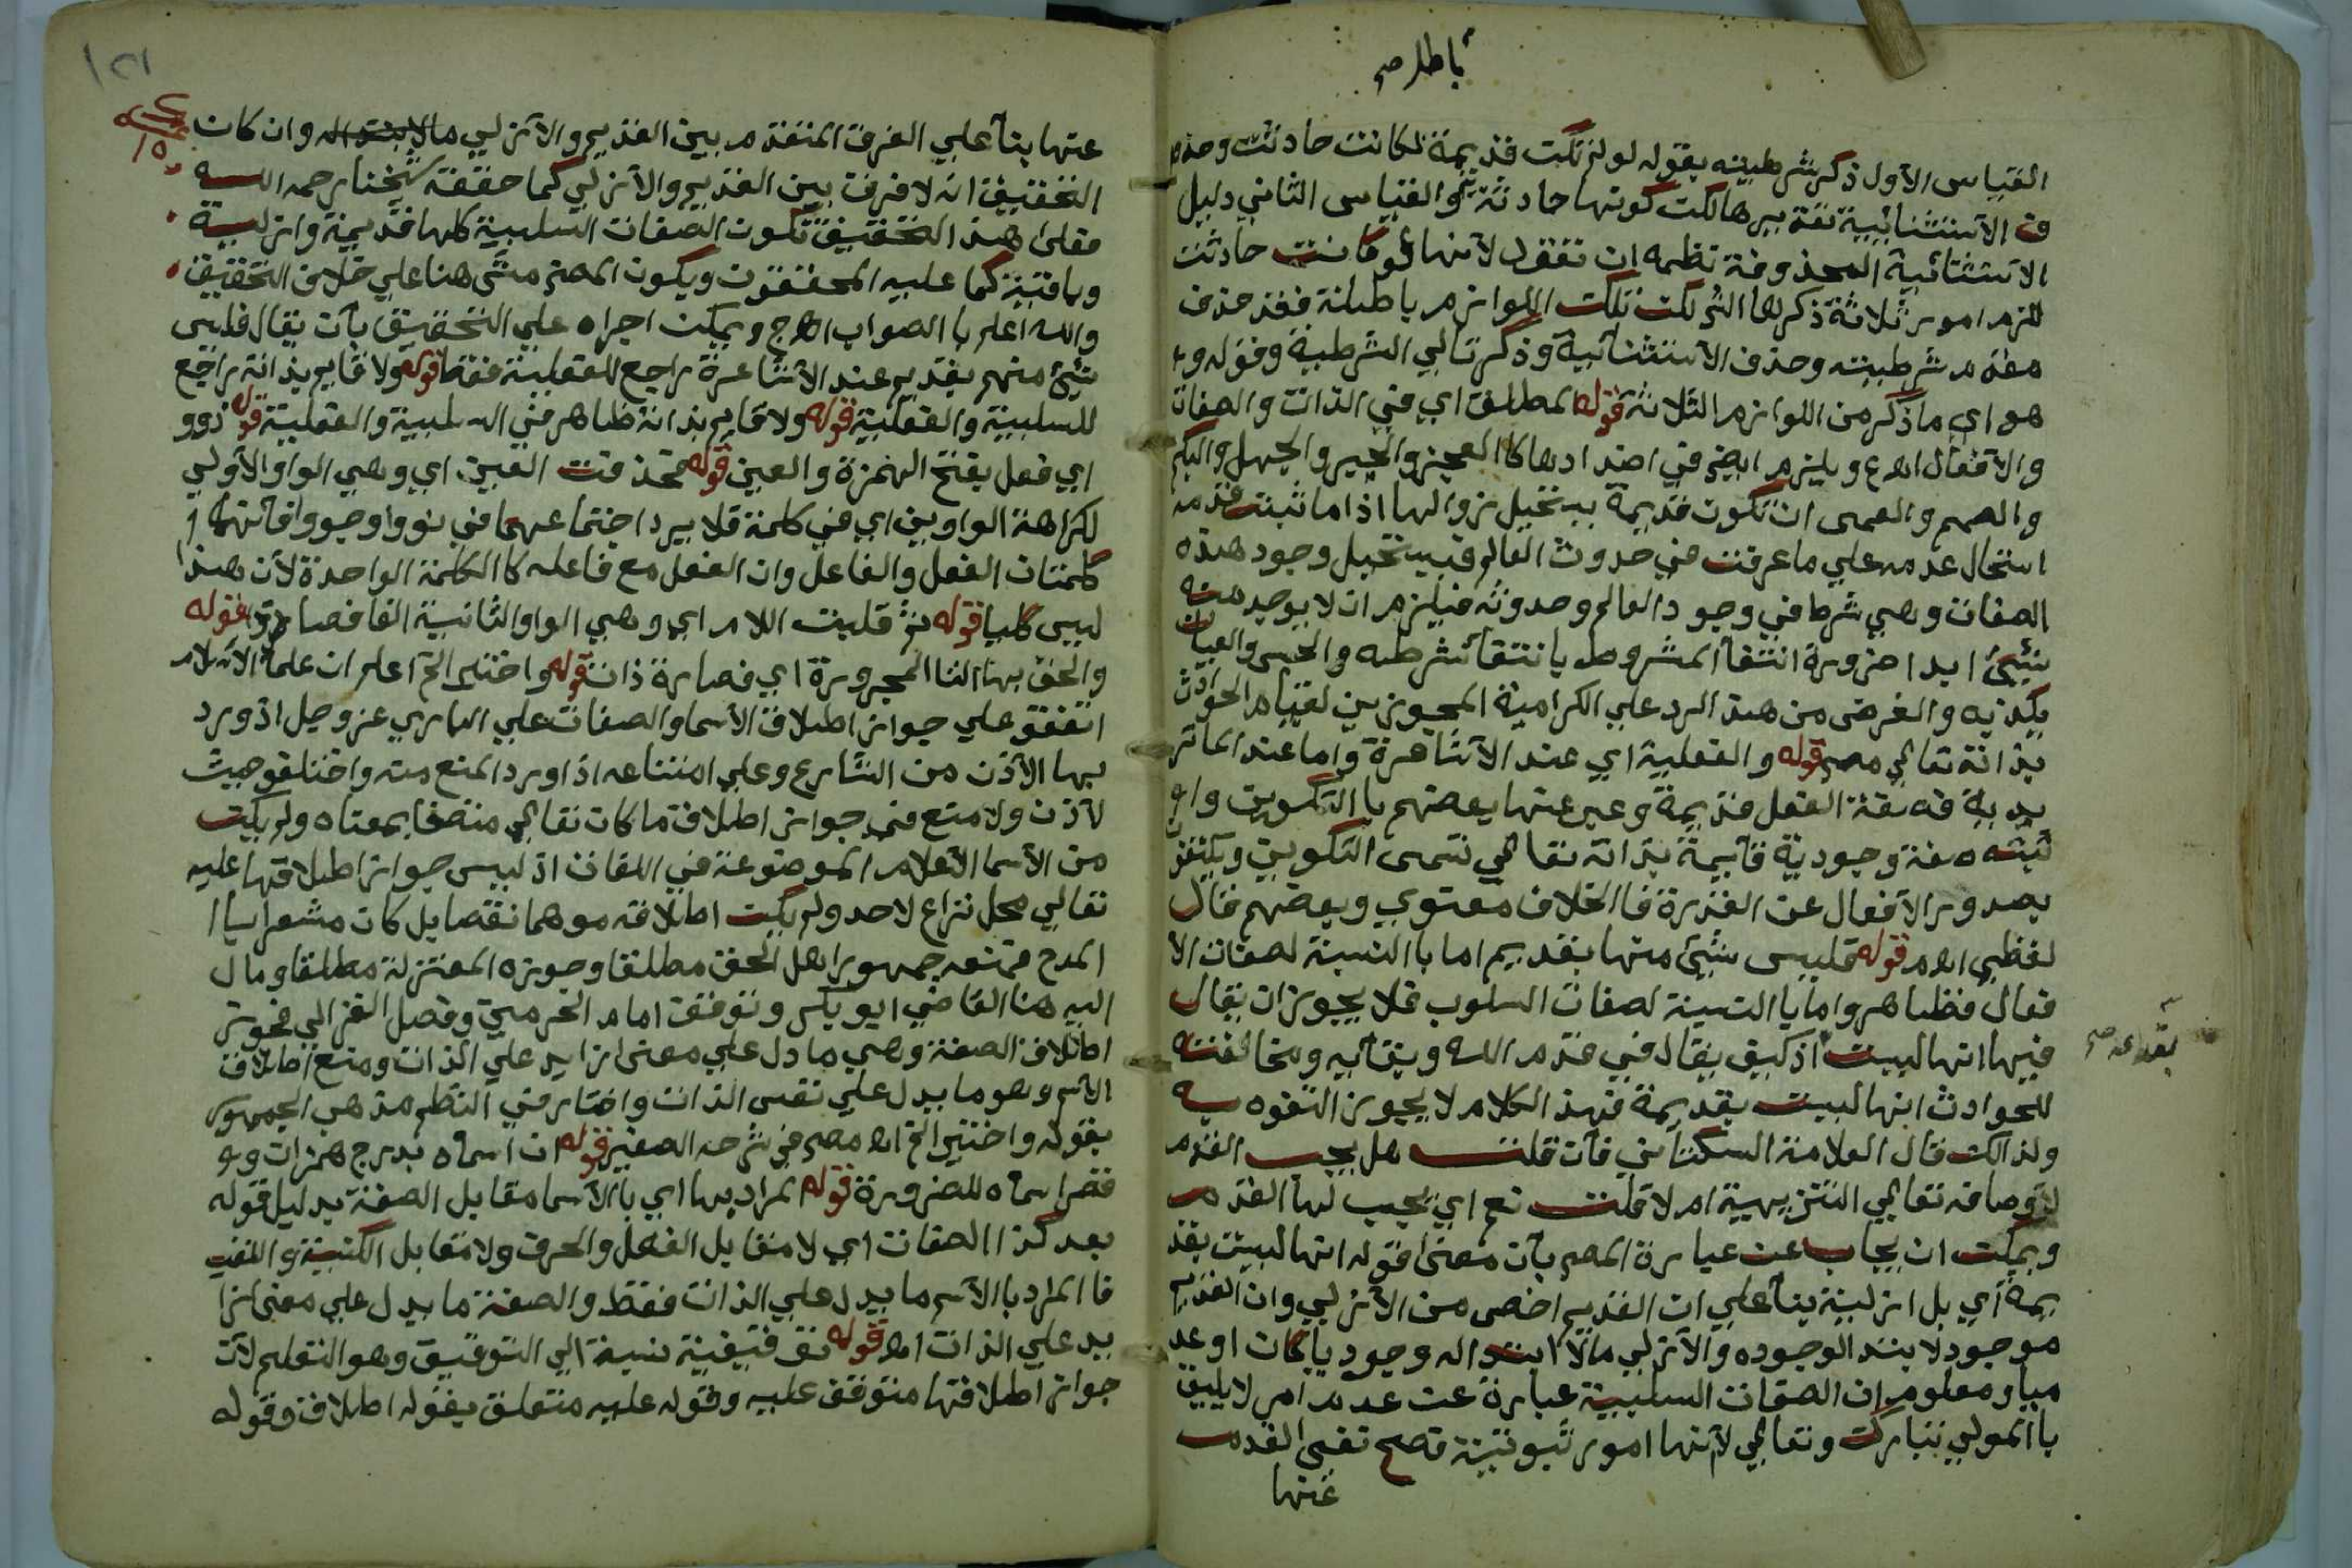 باطل صح
القياس الأول ذكر شرطيته بقوله لو لم تكن قديمة لكانت حادثة وحذ
ف الاستثنائية تقديرها لكن كونها حادثة والقياس الثاني دليل
الاستثنائية المحذوفة نظمه ان تقول لانها لو كانت حادثة
للزم امور ثلاثة ذكرها الش لكن تلك اللوازم باطلة فقد حذف
مقدم شرطيته وحذف الاستثنائية وذكر تالي الشرطية وقوله و
هو اي ما ذكر من اللوازم الثلاثة قوله المطلق اي في الذات والصفات
والافعال اه ع ويلزم ايضا في اضدادها كالعجز والجبر والجهل والبكم
والصمم والعمى ان تكون قديمة يستحيل زوالها اذ ما ثبت قدمه
استحال عدمه على ما عرفت في حدوث العالم فيستحيل وجود هذه
الصفات وهي شرط في وجود العالم وحدوثه فيلزم ان لا يوجد منه
شيئ ابدا ضرورة انتفا المشروط بانتفا شرطه والحس والعيان
يكذبه والغرض من هذا الرد على الكرامية المجوزين لقيام الحوادث
بذاته تعالى مص قوله والفعلية اي عند الاشاعرة واما عند الماتر
يدية فصفة الفعل قديمة وعبر عنها بعضهم بالتكوين وا
ثبته صفة وجودية قائمة بذاته تعالى تسمى التكوين ويكتفى
بصدور الافعال عن القدرة فالخلاف معنوي وبعضهم قال
لفظي اه م قوله فليس شيئ منها بقديم اما بالنسبة لصفات الا
فعال فظاهر واما بالنسبة لصفات السلوب فلا يجوز ان يقال
فيها انها ليست اذ كيف يقال في قدم الله وبقايه ومخالفته
بقديمة صح
للحوادث انها ليست بقديمة فهذا الكلام لا يجوز التفوه به
ولذلك قال العلامة السكتاني فان قلت هل يجب القدم
لاوصافه تعالى التنزيهية ام لا قلت نعم اي يجب لها القدم
ويمكن ان يجاب عن عبارة المص بان معنى قوله انها ليست بقد
يمة اي بل ازلية بنا على ان القديم اخص من الازلي وان القديم
موجود لا ابتدا لوجوده والازلي ما لا ابتدا له وجوديا كان او عد
ميا ومعلوم ان الصفات السلبية عبارة عن عدم امر لا يليق
بالمولى تبارك وتعالى لانها امور ثبوتية فصح نفى القدم
عنها
١٢١
عنها بنا على الفرق المتقدم بين القديم والازلي ما لا له وان كان
التحقيق انه لا فرق بين القديم والازلي كما حققه شيخنا رحمه الله
فعلى هذا التحقيق تكون الصفات السلبية كلها قديمة وازلية
وباقية كما عليه المحققون ويكون المص مشى هنا على خلاف التحقيق
والله اعلم بالصواب اه ج ويمكن اجراه على التحقيق بان يقال فليس
شيئ منهم بقديم عند الاشاعرة راجع للفعلية فقط قوله ولا قايم بذاته راجع
للسلبية والفعلية قوله ولا قايم بذاته ظاهر في السلبية والفعلية قوله ذوو
اي فعل بفتح الهمزة والعين قوله فحذفت العين اي وهي الواو الاولى
لكراهة الواوين اي في كلمة فلا يرد اجتماعهما في نووا وحووا فانهما
كلمتان الفعل والفاعل وان الفعل مع فاعله كالكلمة الواحدة لان هذا
ليس كليا قوله ثم قلبت اللام اي وهي الواو الثانية الفا فصار ذوا قوله
والحق بها التا المجرورة اي فصارة ذات قوله واختير الخ اعلم ان علما الاسلام
اتفقو على جواز اطلاق الاسما والصفات على الباري عز وجل اذ ورد
بها الاذن من الشارع وعلى امتناعه اذا ورد المنع منه واختلفو حيث
لا اذن ولا منع في جواز اطلاق ما كان تعالى متصفا بمعناه ولم يكن
من الاسما الاعلام الموضوعة في اللغات اذ ليس جواز اطلاقها عليه
تعالى محل نزاع لاحد ولم يكن اطلاقه موهما نقصا بل كان مشعرا با
المدح فمنعه جمهور اهل الحق مطلقا وجوزه المعتزلة مطلقا ومال
اليه هنا القاضي ابو بكر وتوقف امام الحرمين وفصل الغزالي فجوز
اطلاق الصفة وهي ما دل على معنى زايد على الذات ومنع اطلاق
الاسم وهو ما يدل على نفس الذات واختار في النظم مذهب الجمهور
بقوله واختير الخ اه مص في شرحه الصغير قوله ان اسماه بدرج همزات و
قصر اسماه للضرورة قوله المراد بها اي بالاسما مقابل الصفة بدليل قوله
بعد كذا الصفات اي لا مقابل الفعل والحرف ولا مقابل الكنية واللقب
فالمراد بالاسم ما يدل على الذات فقط والصفة ما يدل على معنى زا
يد على الذات اه قوله توقيفية نسبة الى التوقيف وهو التعليم لان
جواز اطلاقها متوقف عليه وقوله عليه متعلق بقوله اطلاق وقوله